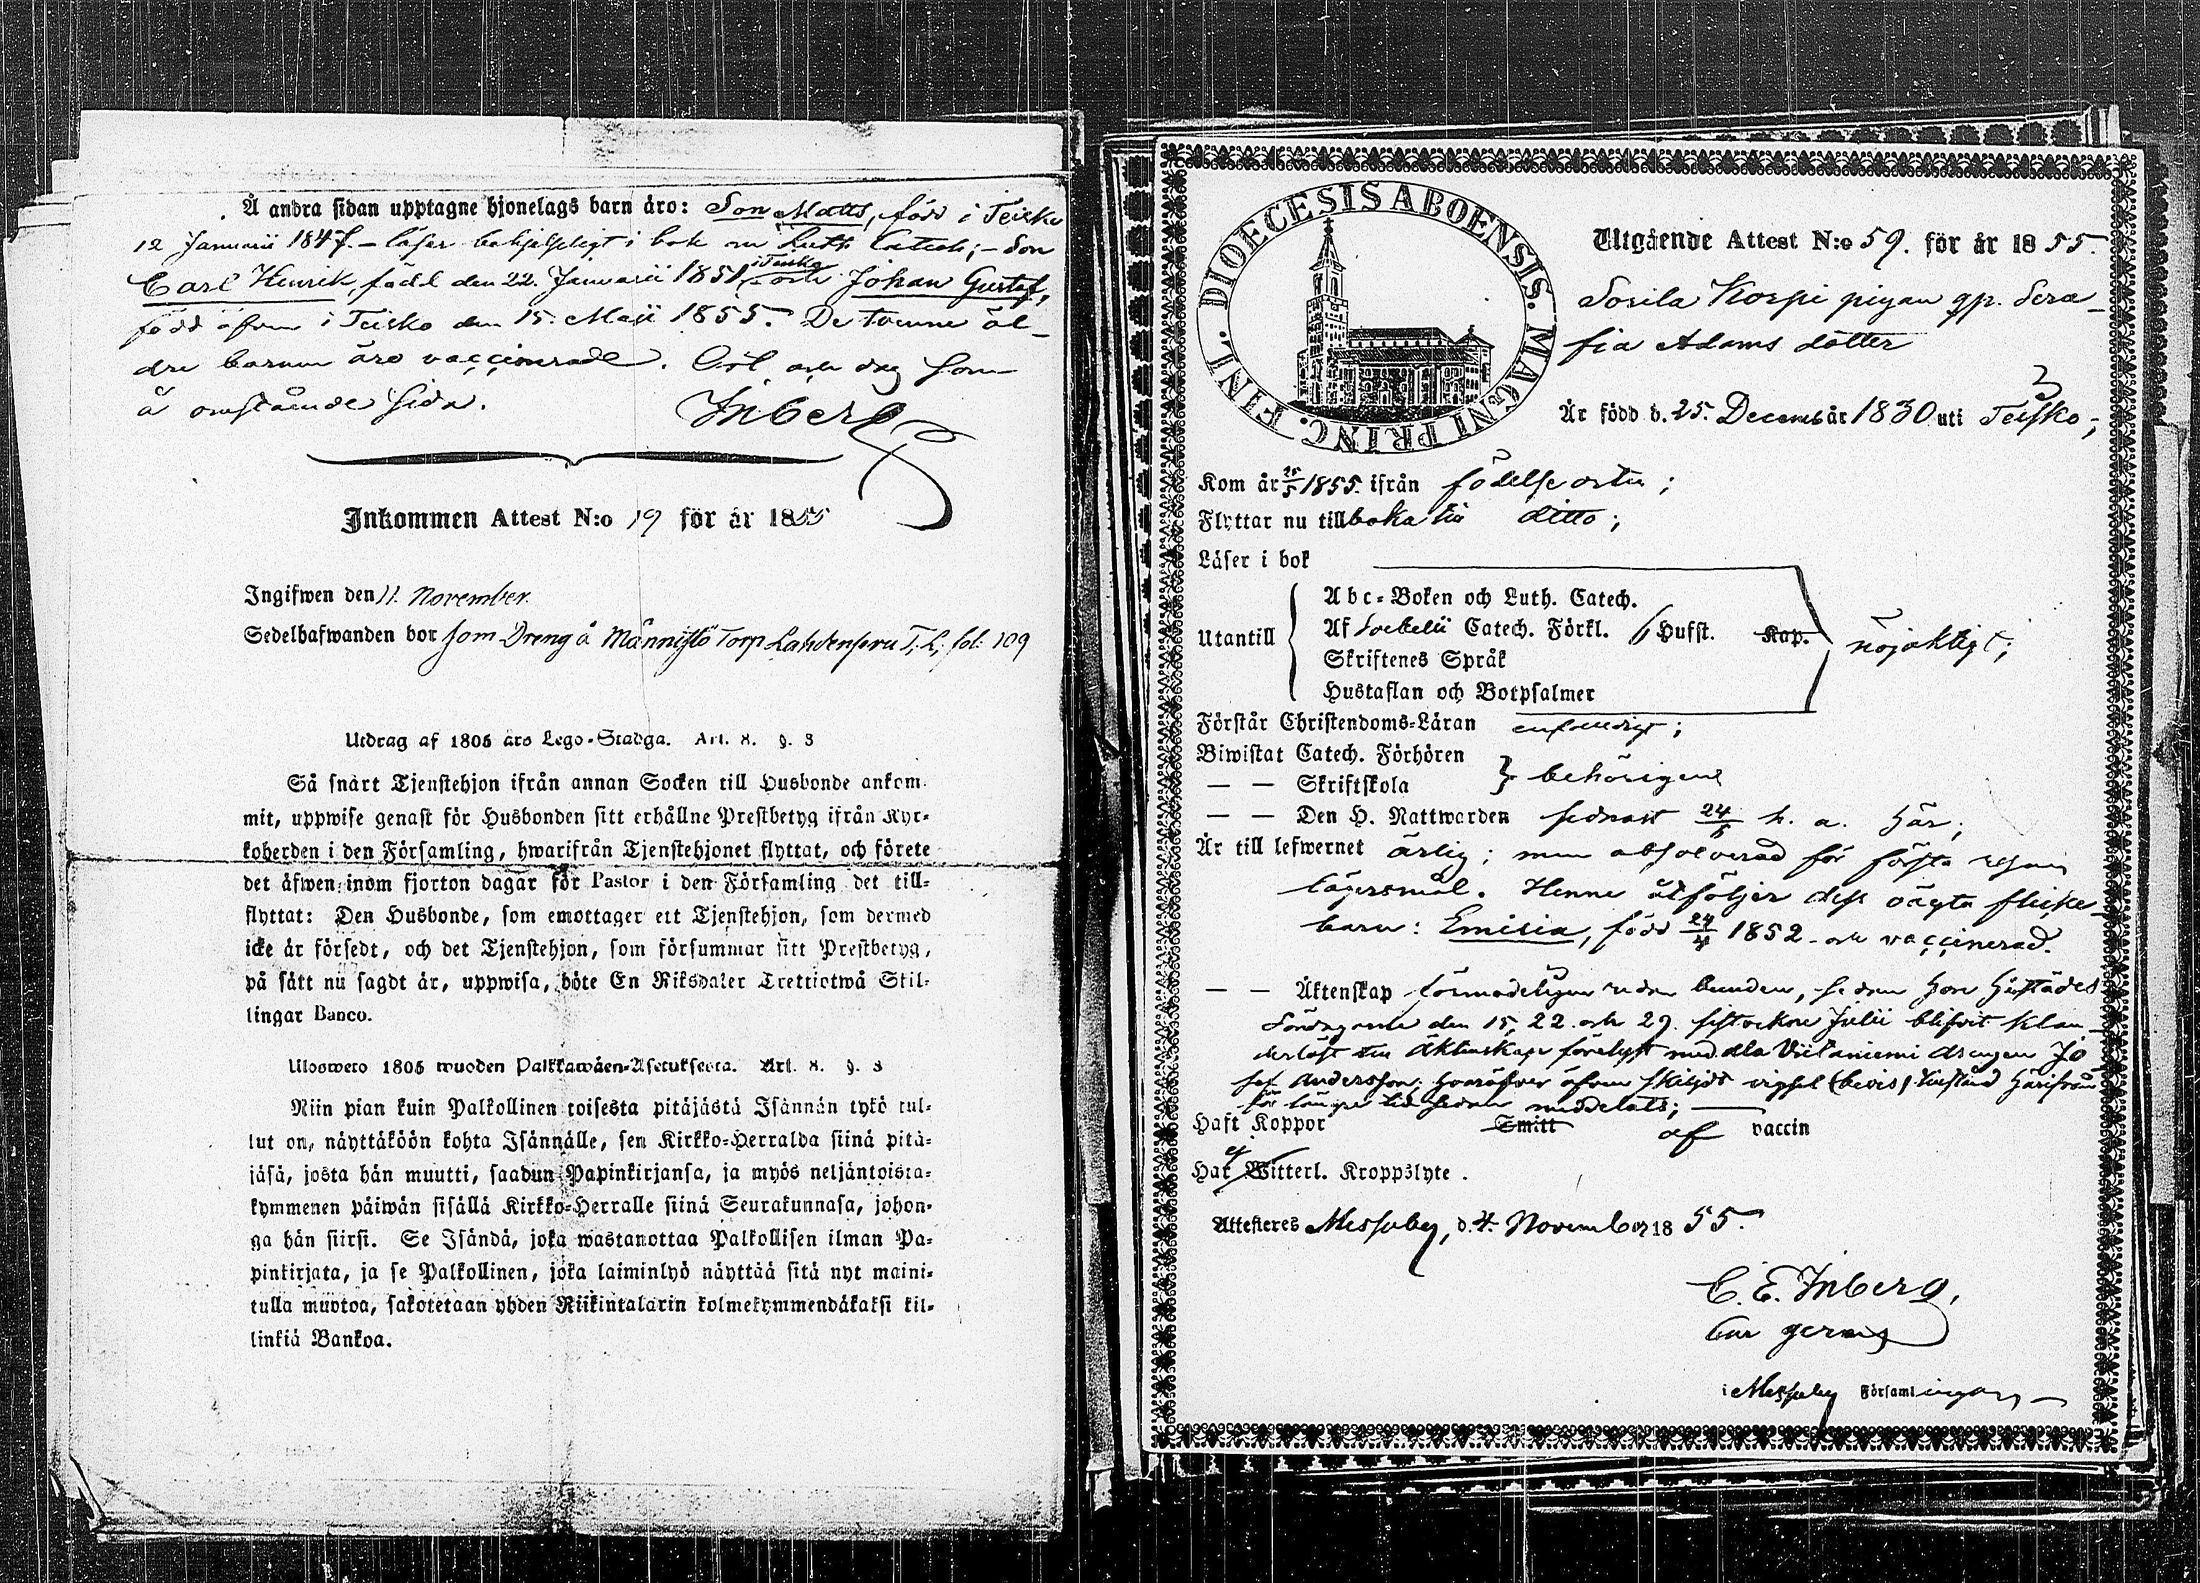 Å andra sidan upptagne hjonelags barn äro: Son Matts, född i Teisko
12 Januarii 1847. – läser behjelpligt i bok Luth Catech; – Son
i Teisko
Carl Henrik, född den 22. Januarii 1851, och Johan Gustaf,
född äfven i Teisko den 15. Maji 1855. De tvenne äl-
dre barnen äro vaccinerade. Ort och dag som
å omstående sida.
Inberg
Inkommen Attest N:o 19 för år 1855
Ingifwen den 11. November.
Sedelhafwanden bor som Dreng å Männistö Torp Lahdenperä T. L; fol: 109
Utdrag af 1805 års Lego-Stadga. Art. 8. §. 3
Så snart Tjenstehjon ifrån annan Socken till Husbonde ankom-
mit, uppwise genast för Husbonden sitt erhållne Prestbetyg ifrån Kyr-
koherden i den Församling, hwarifrån Tjenstehjonet flyttat, och förete
det äfwen inom fjorton dagar för Pastor i den Församling det till-
flyttat: Den Husbonde, som emottager ett Tjenstehjon, som dermed
icke är försedt, och det Tjenstehjon, som försummar sitt Prestbetyg,
på sätt nu sagdt är, uppwisa, böte En Riksdaler Trettiotwå Skil-
lingar Banco.
Ulosweto 1805 wuoden Palkkawäen-Asetuksesta. Art. 8. §. 3
Niin pian kuin Palkollinen toisesta pitäjästä Isännän tykö tul-
lut on, näyttäköön kohta Isännälle, sen Kirkko-Herralda siinä pitä-
jäsä, josta hän muutti, saadun Papinkirjansa, ja myös neljäntoista-
kymmenen päiwän sisällä Kirkko-Herralle siinä Seurakunnasa, johon-
ga hän siirsi. Se Isändä, joka wastanottaa Palkollisen ilman Pa-
pinkirjata, ja se Palkollinen, joka laiminlyö näyttää sitä nyt maini-
tulla muotoa, sakotetaan yhden Riikintalarin kolmekymmendäkaksi kil-
linkiä Bankoa.
DIOECESIS ABOENSIS. MAGNI PRINC. FINL.
Utgående Attest N:o 59. för år 1855.
Sorila Korpi pigan qp. Sera-
fia Adams dotter
Är född d. 25. Decemb år 1830 uti Teisko;
Kom år 25/5 1855. ifrån födelseorten;
Flyttar nu till baka till ditto;
Läser i bok
Utantill
Abc-Boken och Luth. Catech.
Af Svebelii Catech. Förkl. 6 Hufst. Kap.
Skriftenes Språk
Hustaflan och Botpsalmer
nöjaktigt;
Förstår Christendoms-Läran enfaldigt;
Biwistat Catech. Förhören
— — Skriftskola
behörigen
— — Den H. Nattwarden sednast 24/5 h. a. här;
Är till lefwernet ärlig; men absolverad för första resan
lägersmål. Henne åtföljer dess oägta flicke-
barn: Emilia, född 24/4 1852. och vaccinerad.
— — Äktenskap förmodeligen redan bunden, sedan hon härstädes
Söndagarne den 15, 22. och 29. sistvekne Julii blifvit klan-
derlöst till äktenskap förelyst med Ala Viitaniemi drengen Jo-
sef Andersson; hvaröfver äfven skiljdt vigsel (bevis) härifrån
för längre tid sedan meddelats;
Haft Koppor Smitt af vaccin
ej
Har Witterl. Kroppslyte.
Attesteres Messuby, d. 4. November 18 55.
C. E. Inberg,
i Messuby Församlingar